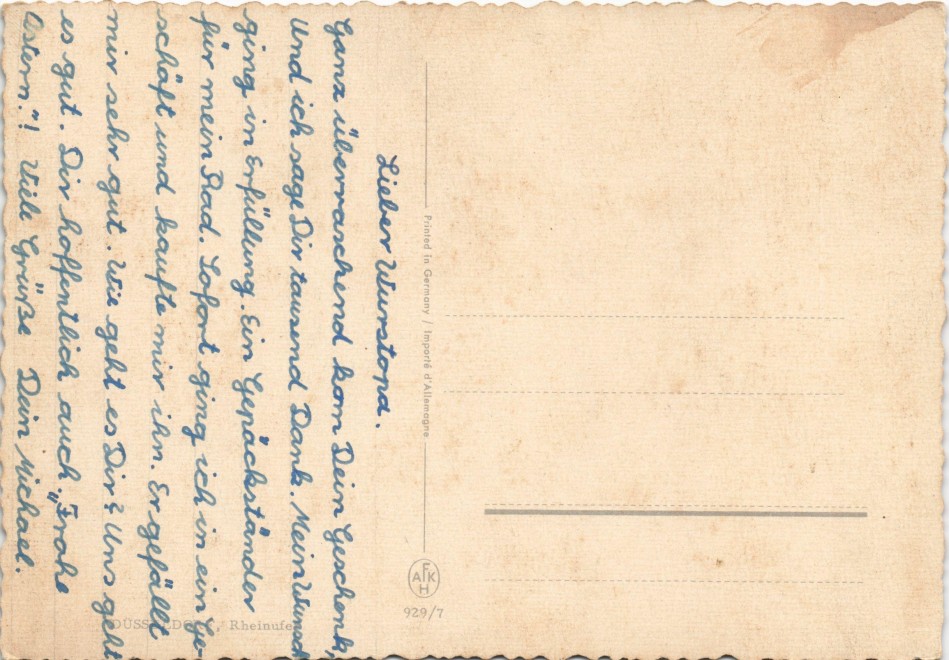 Lieber Wurstopa.
Ganz überraschend kam Dein Geschenk,
Und ich sage Dir tausend Dank. Mein Wunsch
ging in Erfüllung. Ein Gepäckständer
für mein Rad. Sofort ging ich in ein Ge-
schäft und kaufte mir ihn. Er gefällt
mir sehr gut. Wie geht es Dir? Uns geht
es gut. Dir hoffentlich auch. „Frohe
Ostern."! Viele Grüße Dein Michael.
Printed in Germany / Importé d'Allemagne
AFKH
929/7
DÜSSELDORF, Rheinufer